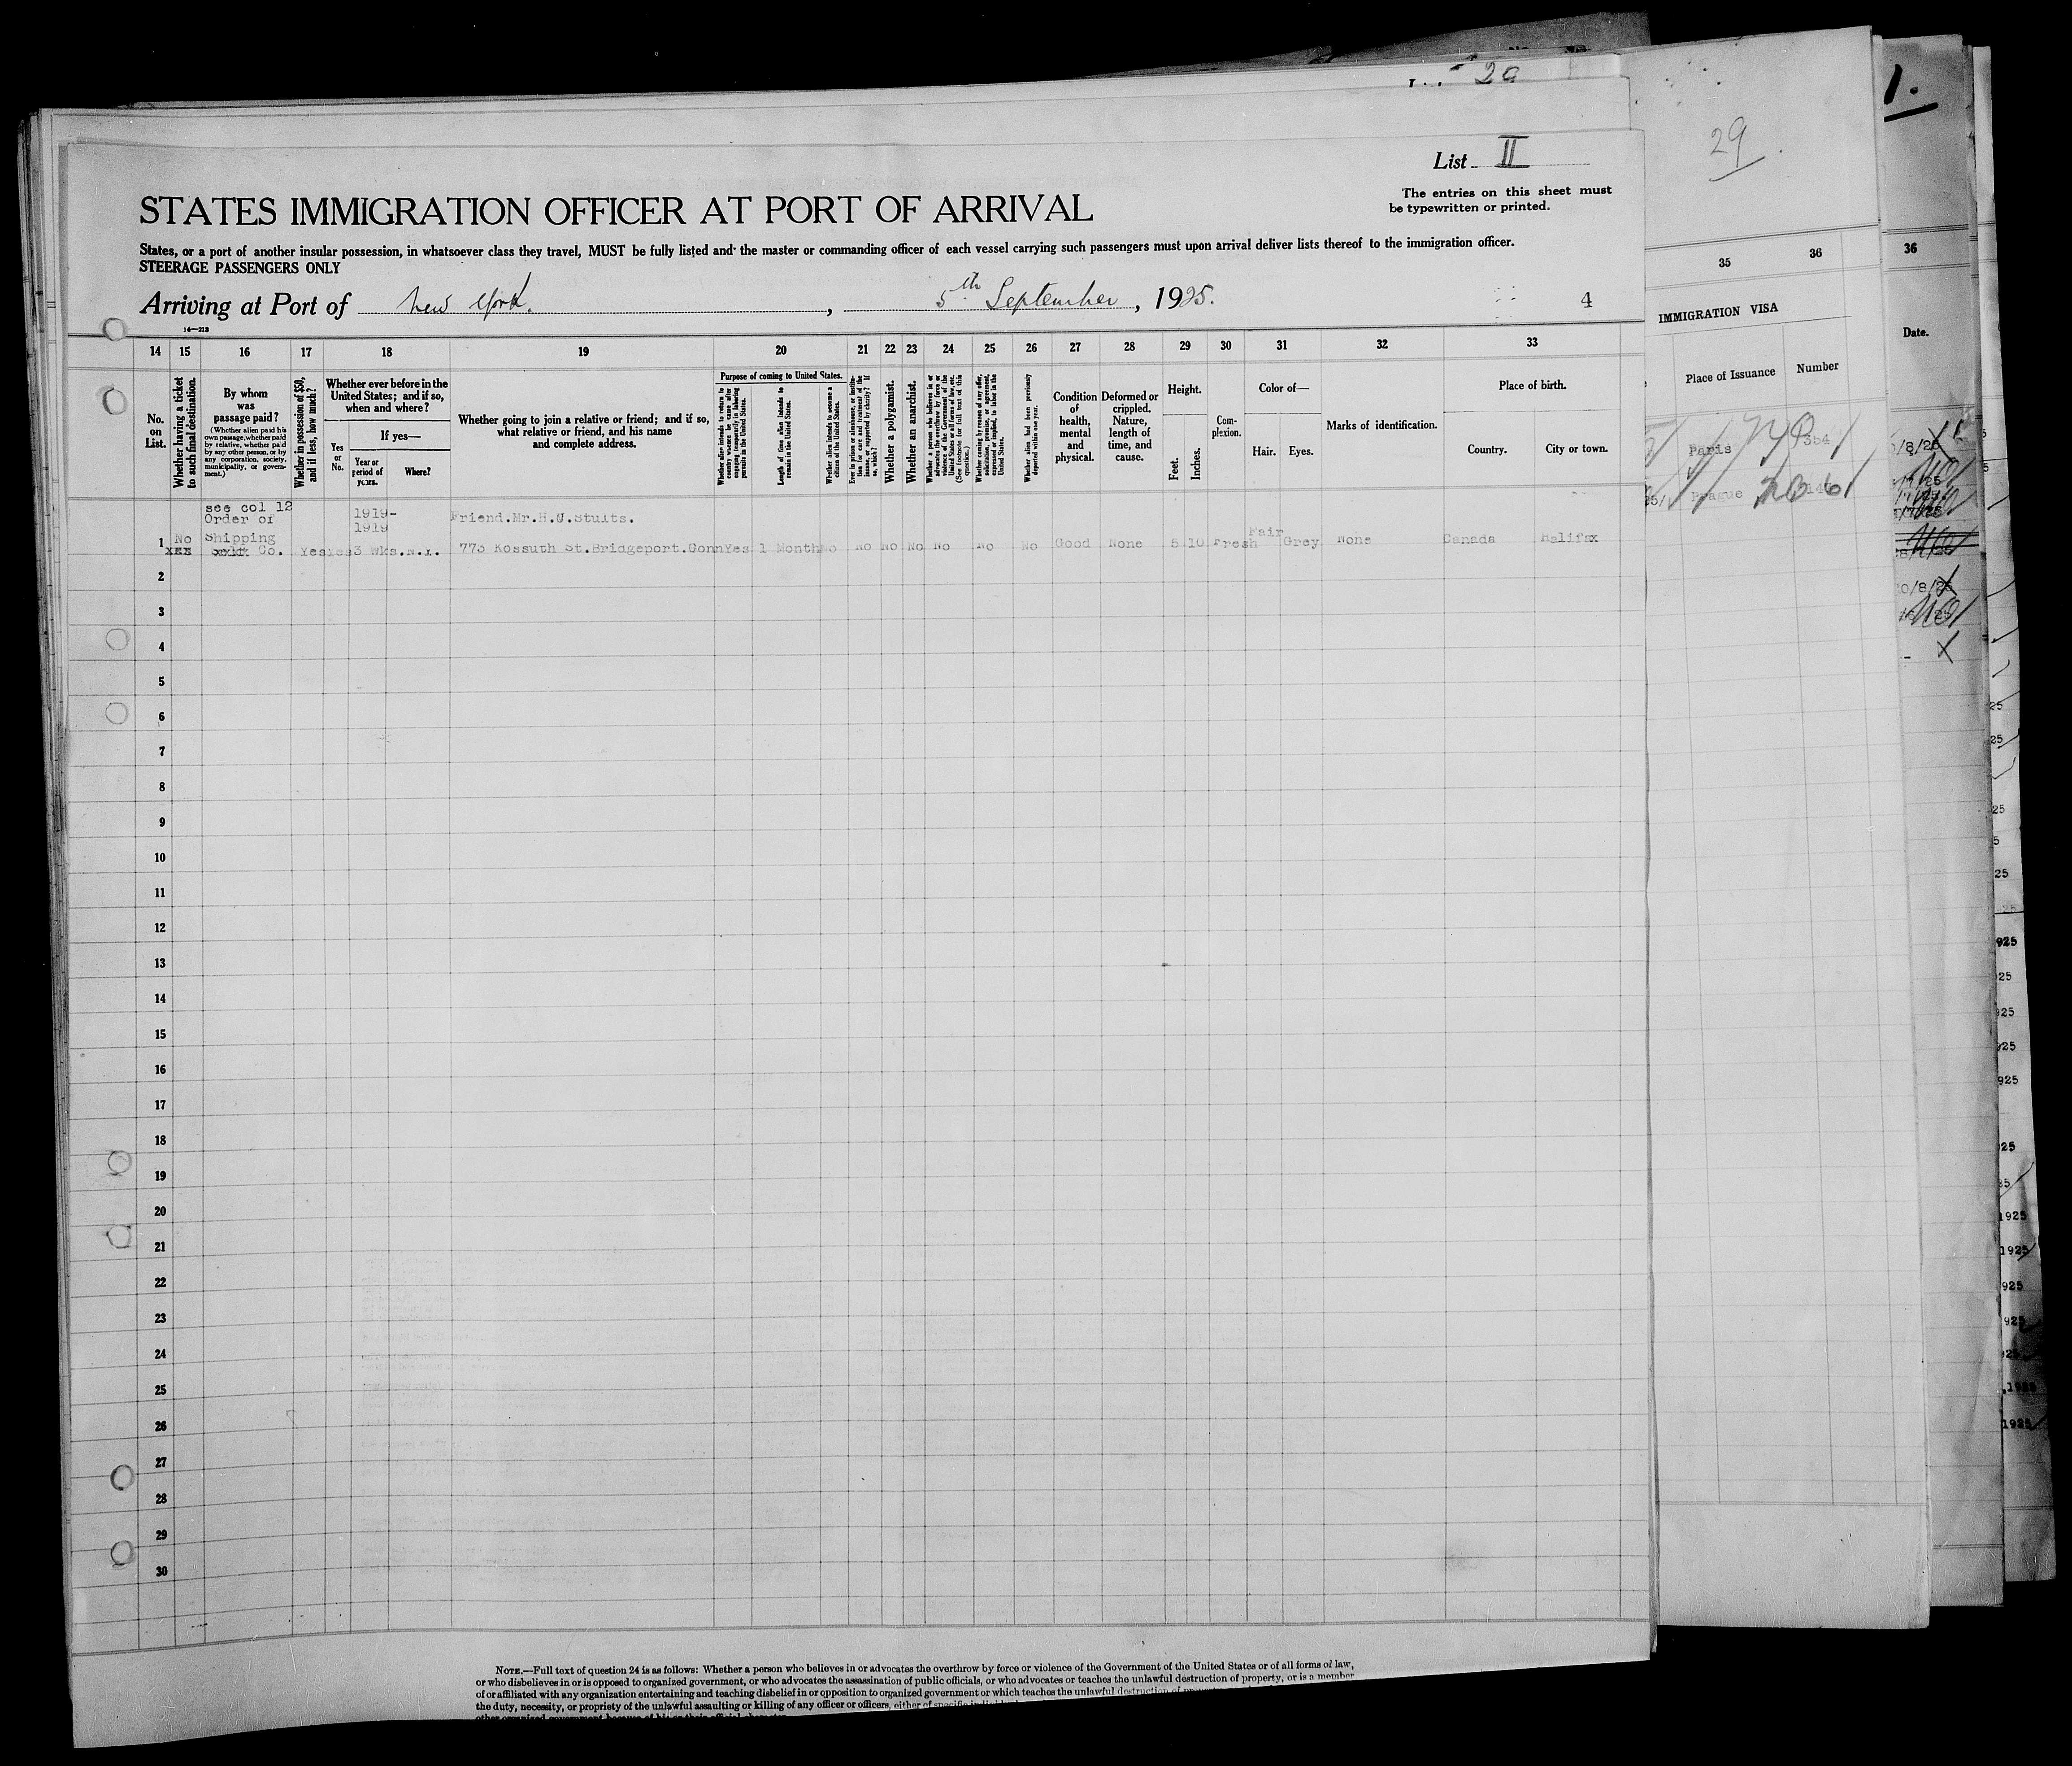 29
29
1.
List II
The entries on this sheet must
be typewritten or printed.
STATES IMMIGRATION OFFICER AT PORT OF ARRIVAL
States, or a port of another insular possession, in whatsoever class they travel, MUST be fully listed and the master or commanding officer of each vessel carrying such passengers must upon arrival deliver lists thereof to the immigration officer.
STEERAGE PASSENGERS ONLY
Arriving at Port of New York. , 5th September , 1925.
4
14—213
14 15 16 17 18 19 20 21 22 23 24 25 26 27 28 29 30 31 32 33
No. on List.
Whether having a ticket to such final destination.
By whom was passage paid?
(Whether alien paid his own passage, whether paid by relative, whether paid by any other person, or by any corporation, society, municipality, or government.)
Whether in possession of $50, and if less, how much?
Whether ever before in the United States; and if so, when and where?
Yes or No.
If yes—
Year or period of years.
Where?
Whether going to join a relative or friend; and if so, what relative or friend, and his name and complete address.
Purpose of coming to United States.
Whether alien intends to return to country whence he came after engaging temporarily in laboring pursuits in the United States.
Length of time alien intends to remain in the United States.
Whether alien intends to become a citizen of the United States.
Ever in prison or almshouse, or institution for care and treatment of the insane, or supported by charity? If so, which?
Whether a polygamist.
Whether an anarchist.
Whether a person who believes in or advocates the overthrow by force or violence of the Government of the United States or all forms of law, etc. (See footnote for full text of this question.)
Whether coming by reason of any offer, solicitation, promise, or agreement, expressed or implied, to labor in the United States.
Whether alien had been previously deported within one year.
Condition of health, mental and physical.
Deformed or crippled. Nature, length of time, and cause.
Height.
Feet.
Inches.
Complexion.
Color of—
Hair. Eyes.
Marks of identification.
Place of birth.
Country. City or town.
see col 12
Order of
1919-
1919
Friend.Mr.H.J.Stults.
1 No Shipping Co. Yes Yes 3 Wks.N.Y. 773 Kossuth St.Bridgeport.Conn Yes 1 Month No No No No No No No Good None 5 10 Fresh Fair Grey None Canada Halifax
2
3
4
5
6
7
8
9
10
11
12
13
14
15
16
17
18
19
20
21
22
23
24
25
26
27
28
29
30
NOTE.—Full text of question 24 is as follows: Whether a person who believes in or advocates the overthrow by force or violence of the Government of the United States or of all forms of law,
or who disbelieves in or is opposed to organized government, or who advocates the assassination of public officials, or who advocates or teaches the unlawful destruction of property, or is a member
of or affiliated with any organization entertaining and teaching disbelief in or opposition to organized government or which teaches the unlawful destruction of
the duty, necessity, or propriety of the unlawful assaulting or killing of any officer or officers, either of specific
35 36
IMMIGRATION VISA
Place of Issuance Number
Paris
Prague
36
Date.